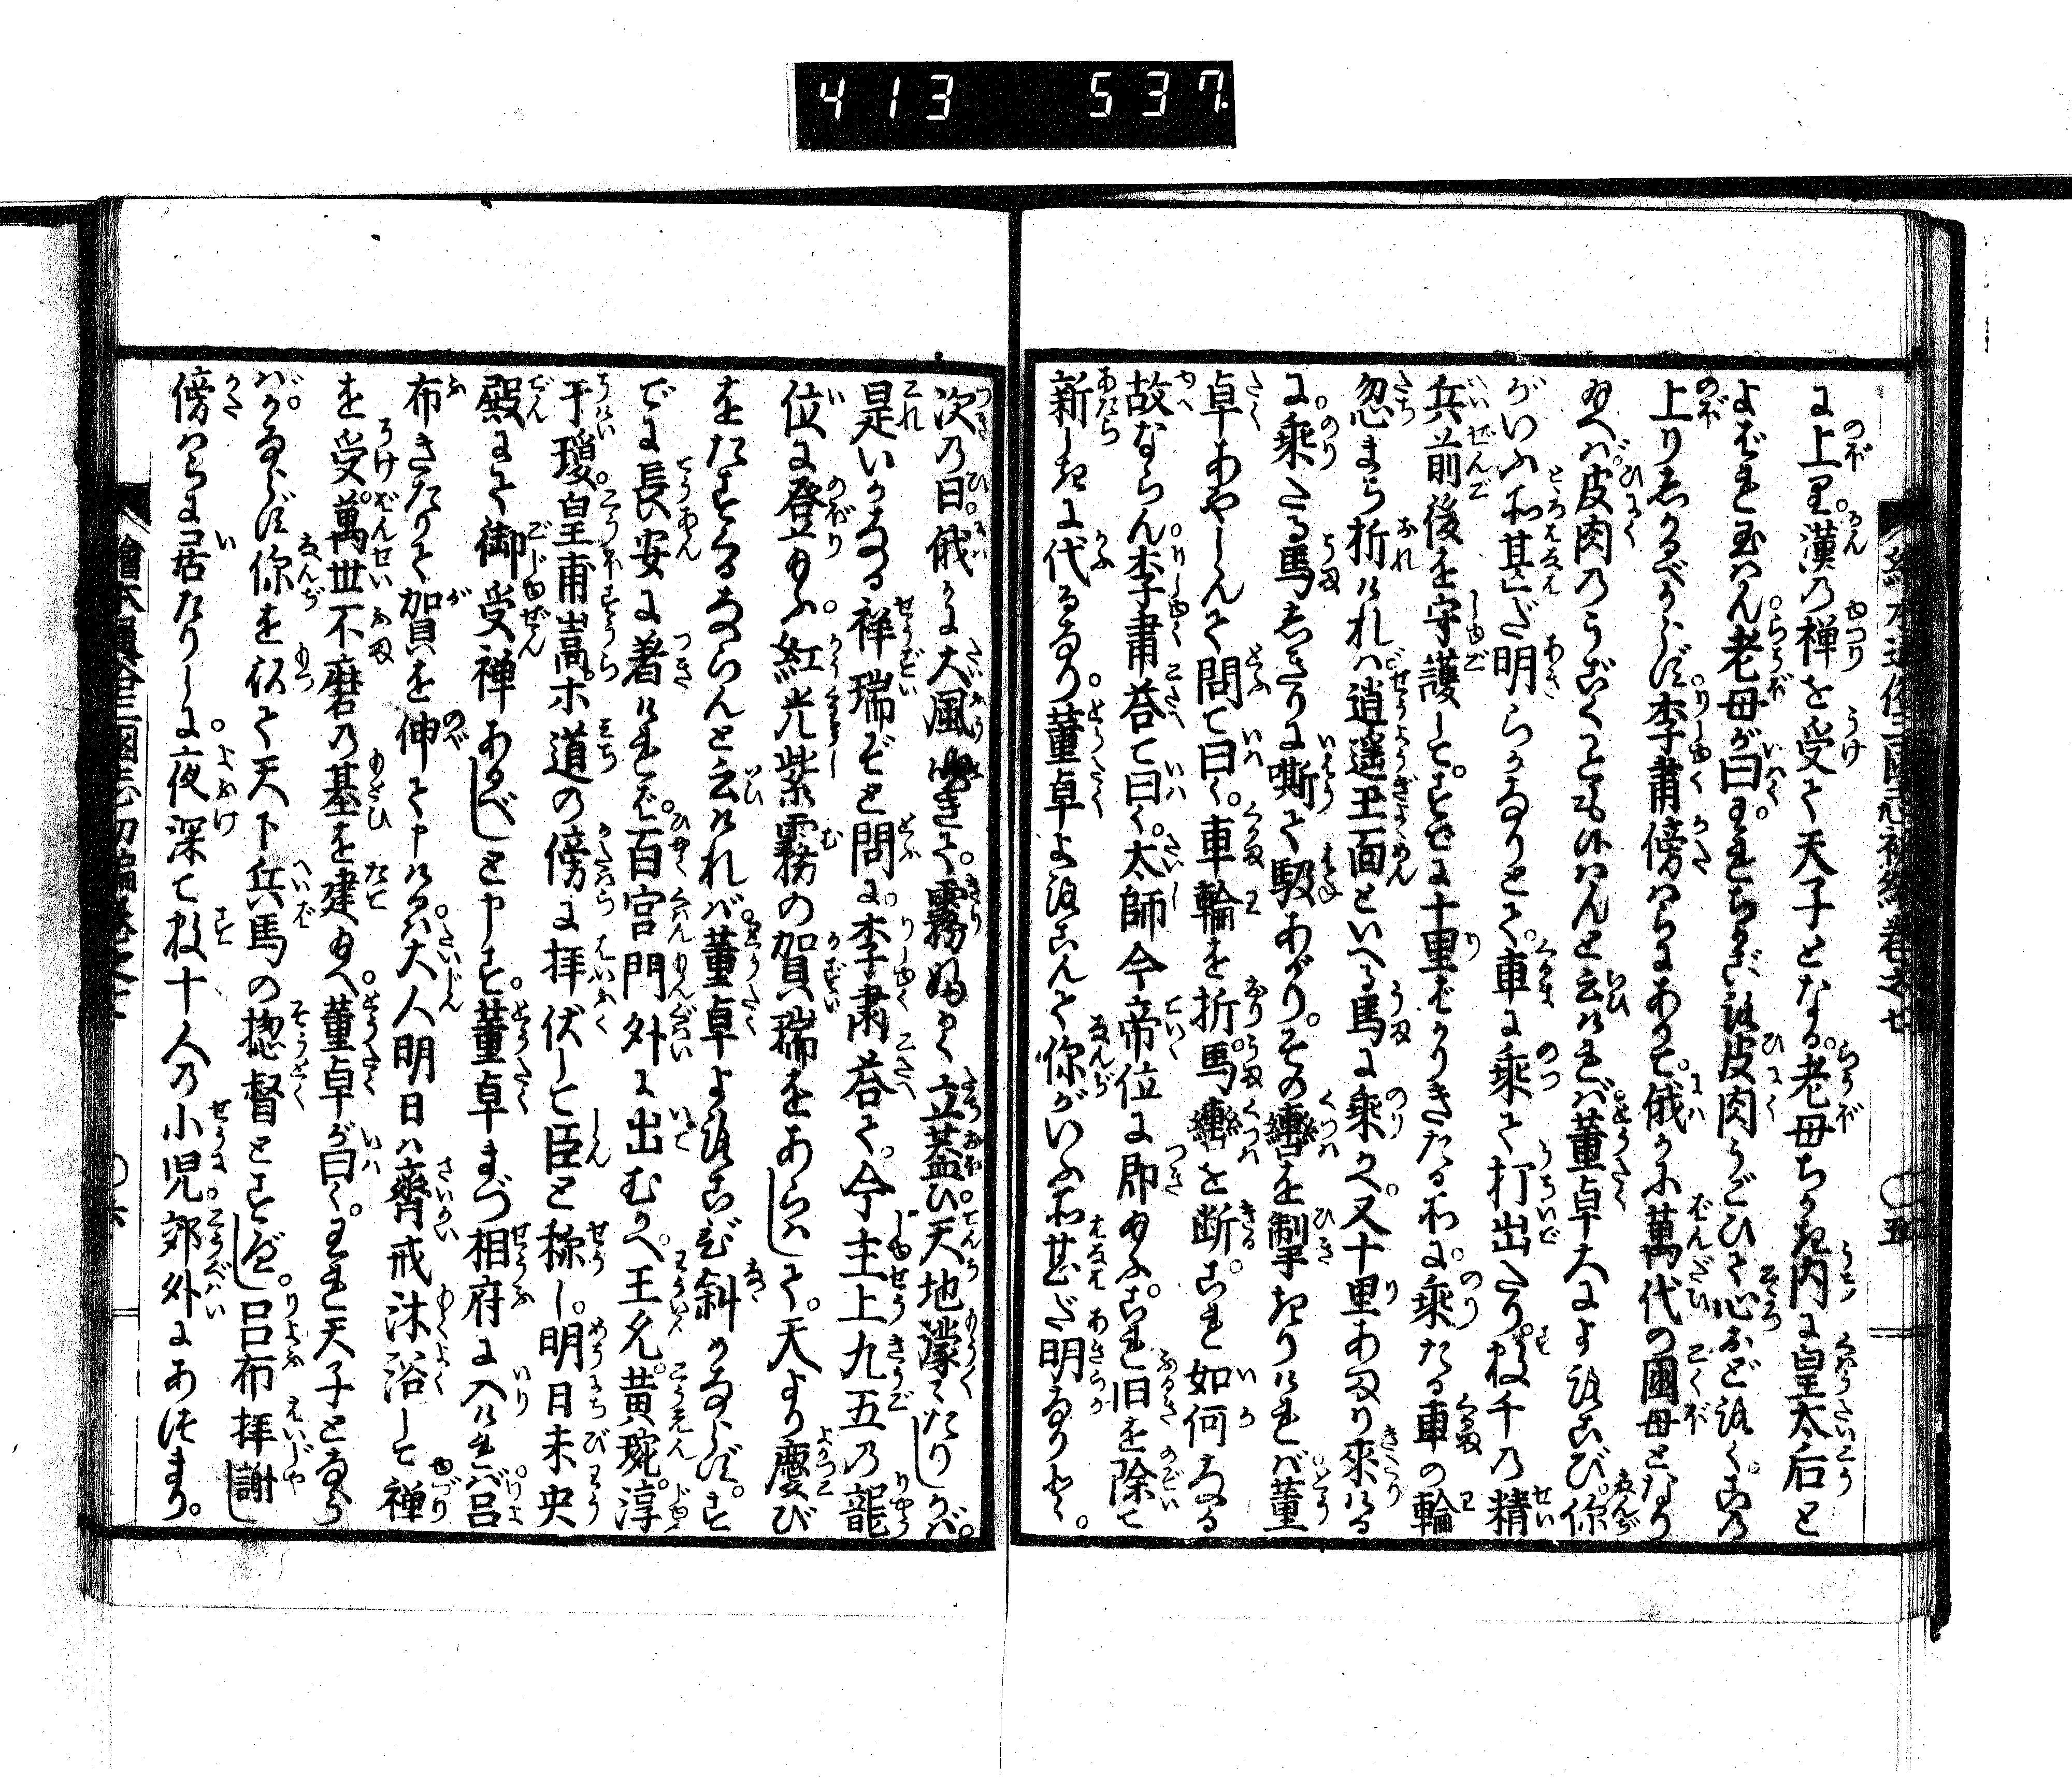 413 537
絵本通俗三國志初編巻之七 〇五
に上り漢の禅を受て天子となる老母ちかき内に皇太后と
よばれ玉はん老母が曰くわれちかごろ皮肉うごひて心おどろくこの
上りあるべからず李肅傍らにありて俄かに萬代の國母となり
玉へば皮肉のうごくことも候はんと云ければ董卓大によろこび你
がいふ所甚だ明らかなりとて車に乗て打出たり数千の精
兵前後を守護してすでに十里ばかりきたる所に乗たる車の輪
忽まち折ければ逍遥玉面といへる馬に乗かへ又十里あまり来ける
に乗たる馬しきりに嘶て騣あがりその轡を掣きりければ董
卓あやしんで問て曰く車輪を折馬轡を断これ如何なる
故ならん李肅答て曰く太師今帝位に即玉ふこれ旧を除て
新しきに代るなり董卓よろこんで你がいふ所甚だ明なりとく
次の日俄かに大風吹きて霧ふかく立葢ひ天地濛々たりしかば
是いかなる祥瑞ぞと問に李肅答て今主上九五の龍
位に登り玉ふ紅光紫霧の賀瑞をあらはして天より慶び
をたまたるならんと云ければ董卓よろこび斜かならずす
でに長安に著ければ百官門外に出むかへ王允黄琬淳
于瓊皇甫嵩ホ道の傍に拝伏して臣と称し明日未央
殿にて御受禅あるべしと申す董卓まづ相府に入ければ呂
布きたりて賀を伸て申けるは大人明日は齊戒沐浴して禅
を受萬世不磨の基を建玉へ董卓が曰くわれ天子となら
ばかならず你を以て天下兵馬の惣督とすべし呂布拝謝し
傍らに居たりしに夜深て数十人の小児郊外にあつまり
繪本通俗三國志初編巻之七 〇六